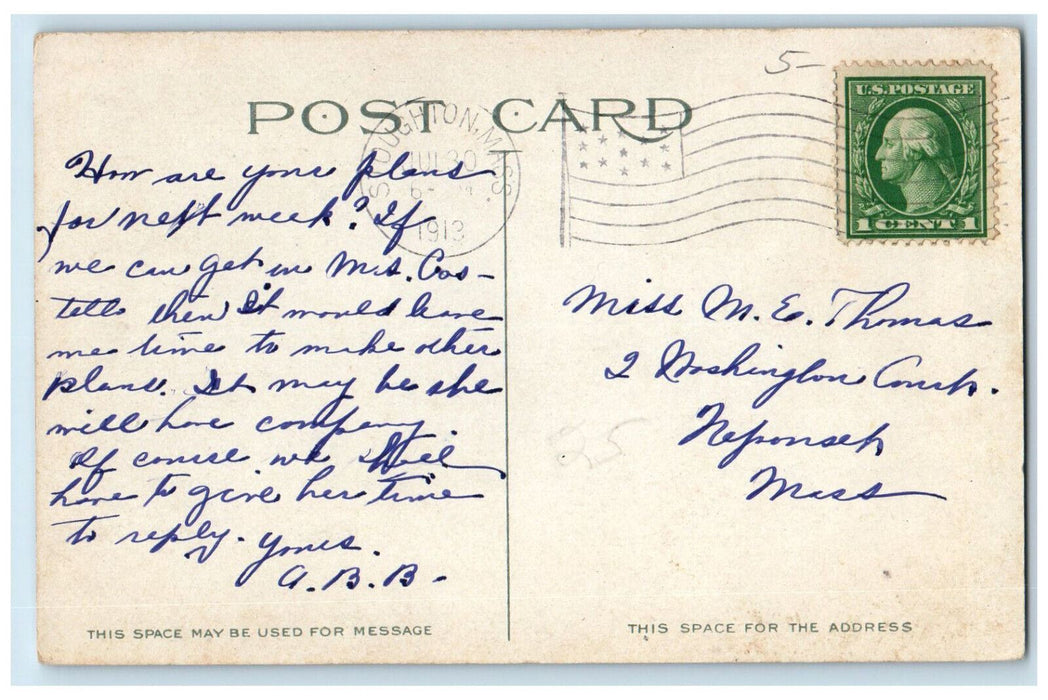 5-
U.S. POSTAGE
POST CARD
STOUGHTON, MASS.
JUL 20
6-
1913
1 CENT 1
How are your plans
for next week? If
we can get in Mrs. Cos-
tello then It would leave
me time to make other
plans. It may be she
will have company.
Of course we shall
have to give her time
to reply. Yours.
A.B.B-
Miss M. E. Thomas
2 Washington Court.
Neponset
Mass
25
THIS SPACE MAY BE USED FOR MESSAGE
THIS SPACE FOR THE ADDRESS